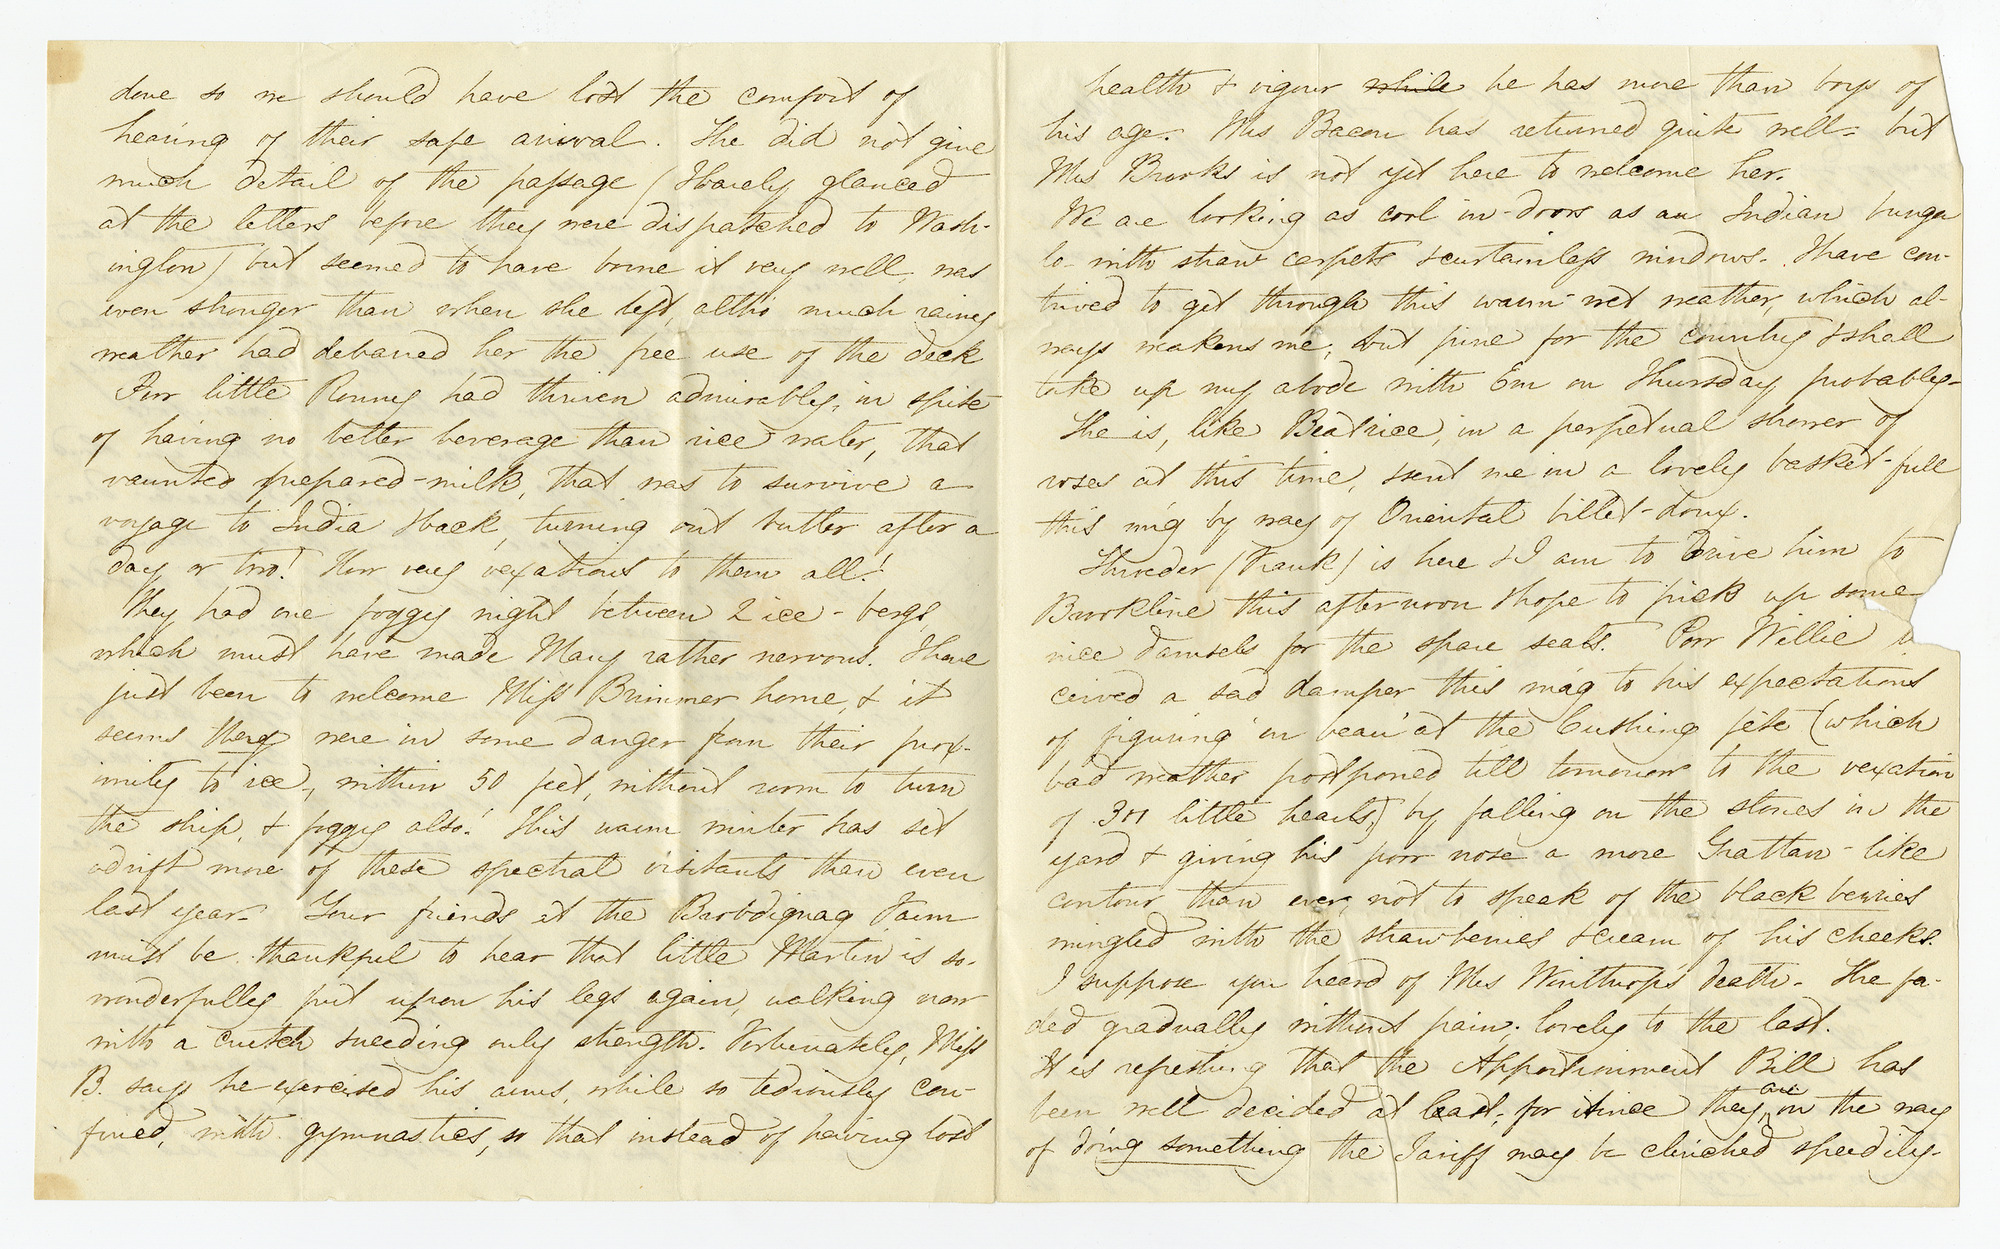 done so we should have lost the comfort of
hearing of their safe arrival. She did not give
much detail of the passage (I barely glanced
at the letters before they were dispatched to Wash-
ington) but seemed to have borne it very well, was
even stronger than when she left, altho' much rainy
weather had debarred her the free use of the deck
Poor little Ronny had thriven admirably, in spite
of having no better beverage than rice water, that
vaunted prepared-milk, that was to survive a
voyage to India & back, turning out butter after a
day or two! How very vexatious to them all!
They had one foggy night between 2 ice-bergs,
which must have made Mary rather nervous. I have
just been to welcome Miss Brimmer home, & it
seems they were in some danger from their prox-
imity to ice, within 50 feet, without room to turn
the ship, & foggy also! This warm winter has set
adrift more of these spectral visitants than even
last year. Your friends at the Brobdignag Farm
must be thankful to hear that little Martin is so
wonderfully put upon his legs again, walking now
with a crutch & needing only strength. Fortunately, Miss
B. says he exercised his arms, while so tediously con-
fined, with gymnastics, so that instead of having lost
health & vigour while he has more than boys of
his age. Mrs Bacon has returned quite well - but
Mrs Brooks is not yet here to welcome her.
We are looking as cool in-doors as an Indian bunga
lo- with straw carpets & curtainless windows. I have con-
trived to get through this warm wet weather, which al-
ways weakens me, but pine for the country & shall
take up my abode with Em on Thursday probably-
She is, like Beatrice, in a perpetual shower of
roses at this time, & sent me in a lovely basket-full
this m'g by way of Oriental billet-doux.
Shreder (Frank) is here & I am to drive him to
Brookline this afternoon & hope to pick up some
nice damsels for the spare seats. Poor Willie
ceived a sad damper this m'ng to his expectations
of figuring 'en beau' at the Cushing fête (which
bad weather postponed till tomorrow to the vexation
of 301 little hearts,) by falling on the stones in the
yard & giving his poor nose a more Grattan-like
contour than ever, not to speak of the black berries
mingled with the strawberries & cream of his cheeks.
I suppose you heard of Mrs Winthrop's death. She fa-
ded gradually without pain, lovely to the last.
It is refreshing that the Apportionment Bill has
been well decided at least, for since they are in the way
of doing something the Tariff may be clinched speedily.